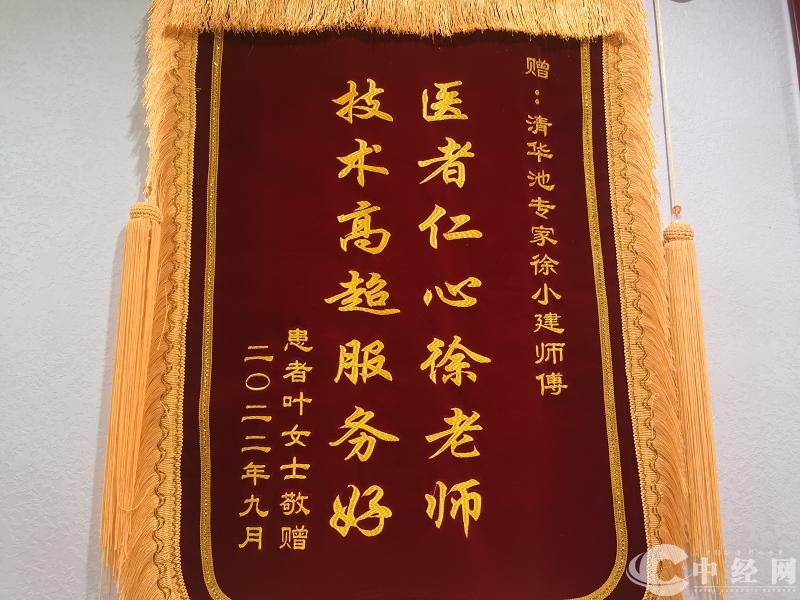 赠：清华池专家徐小建师傅
医者仁心徐老师
技术高超服务好
患者叶女士敬赠
二〇二二年九月
中经网